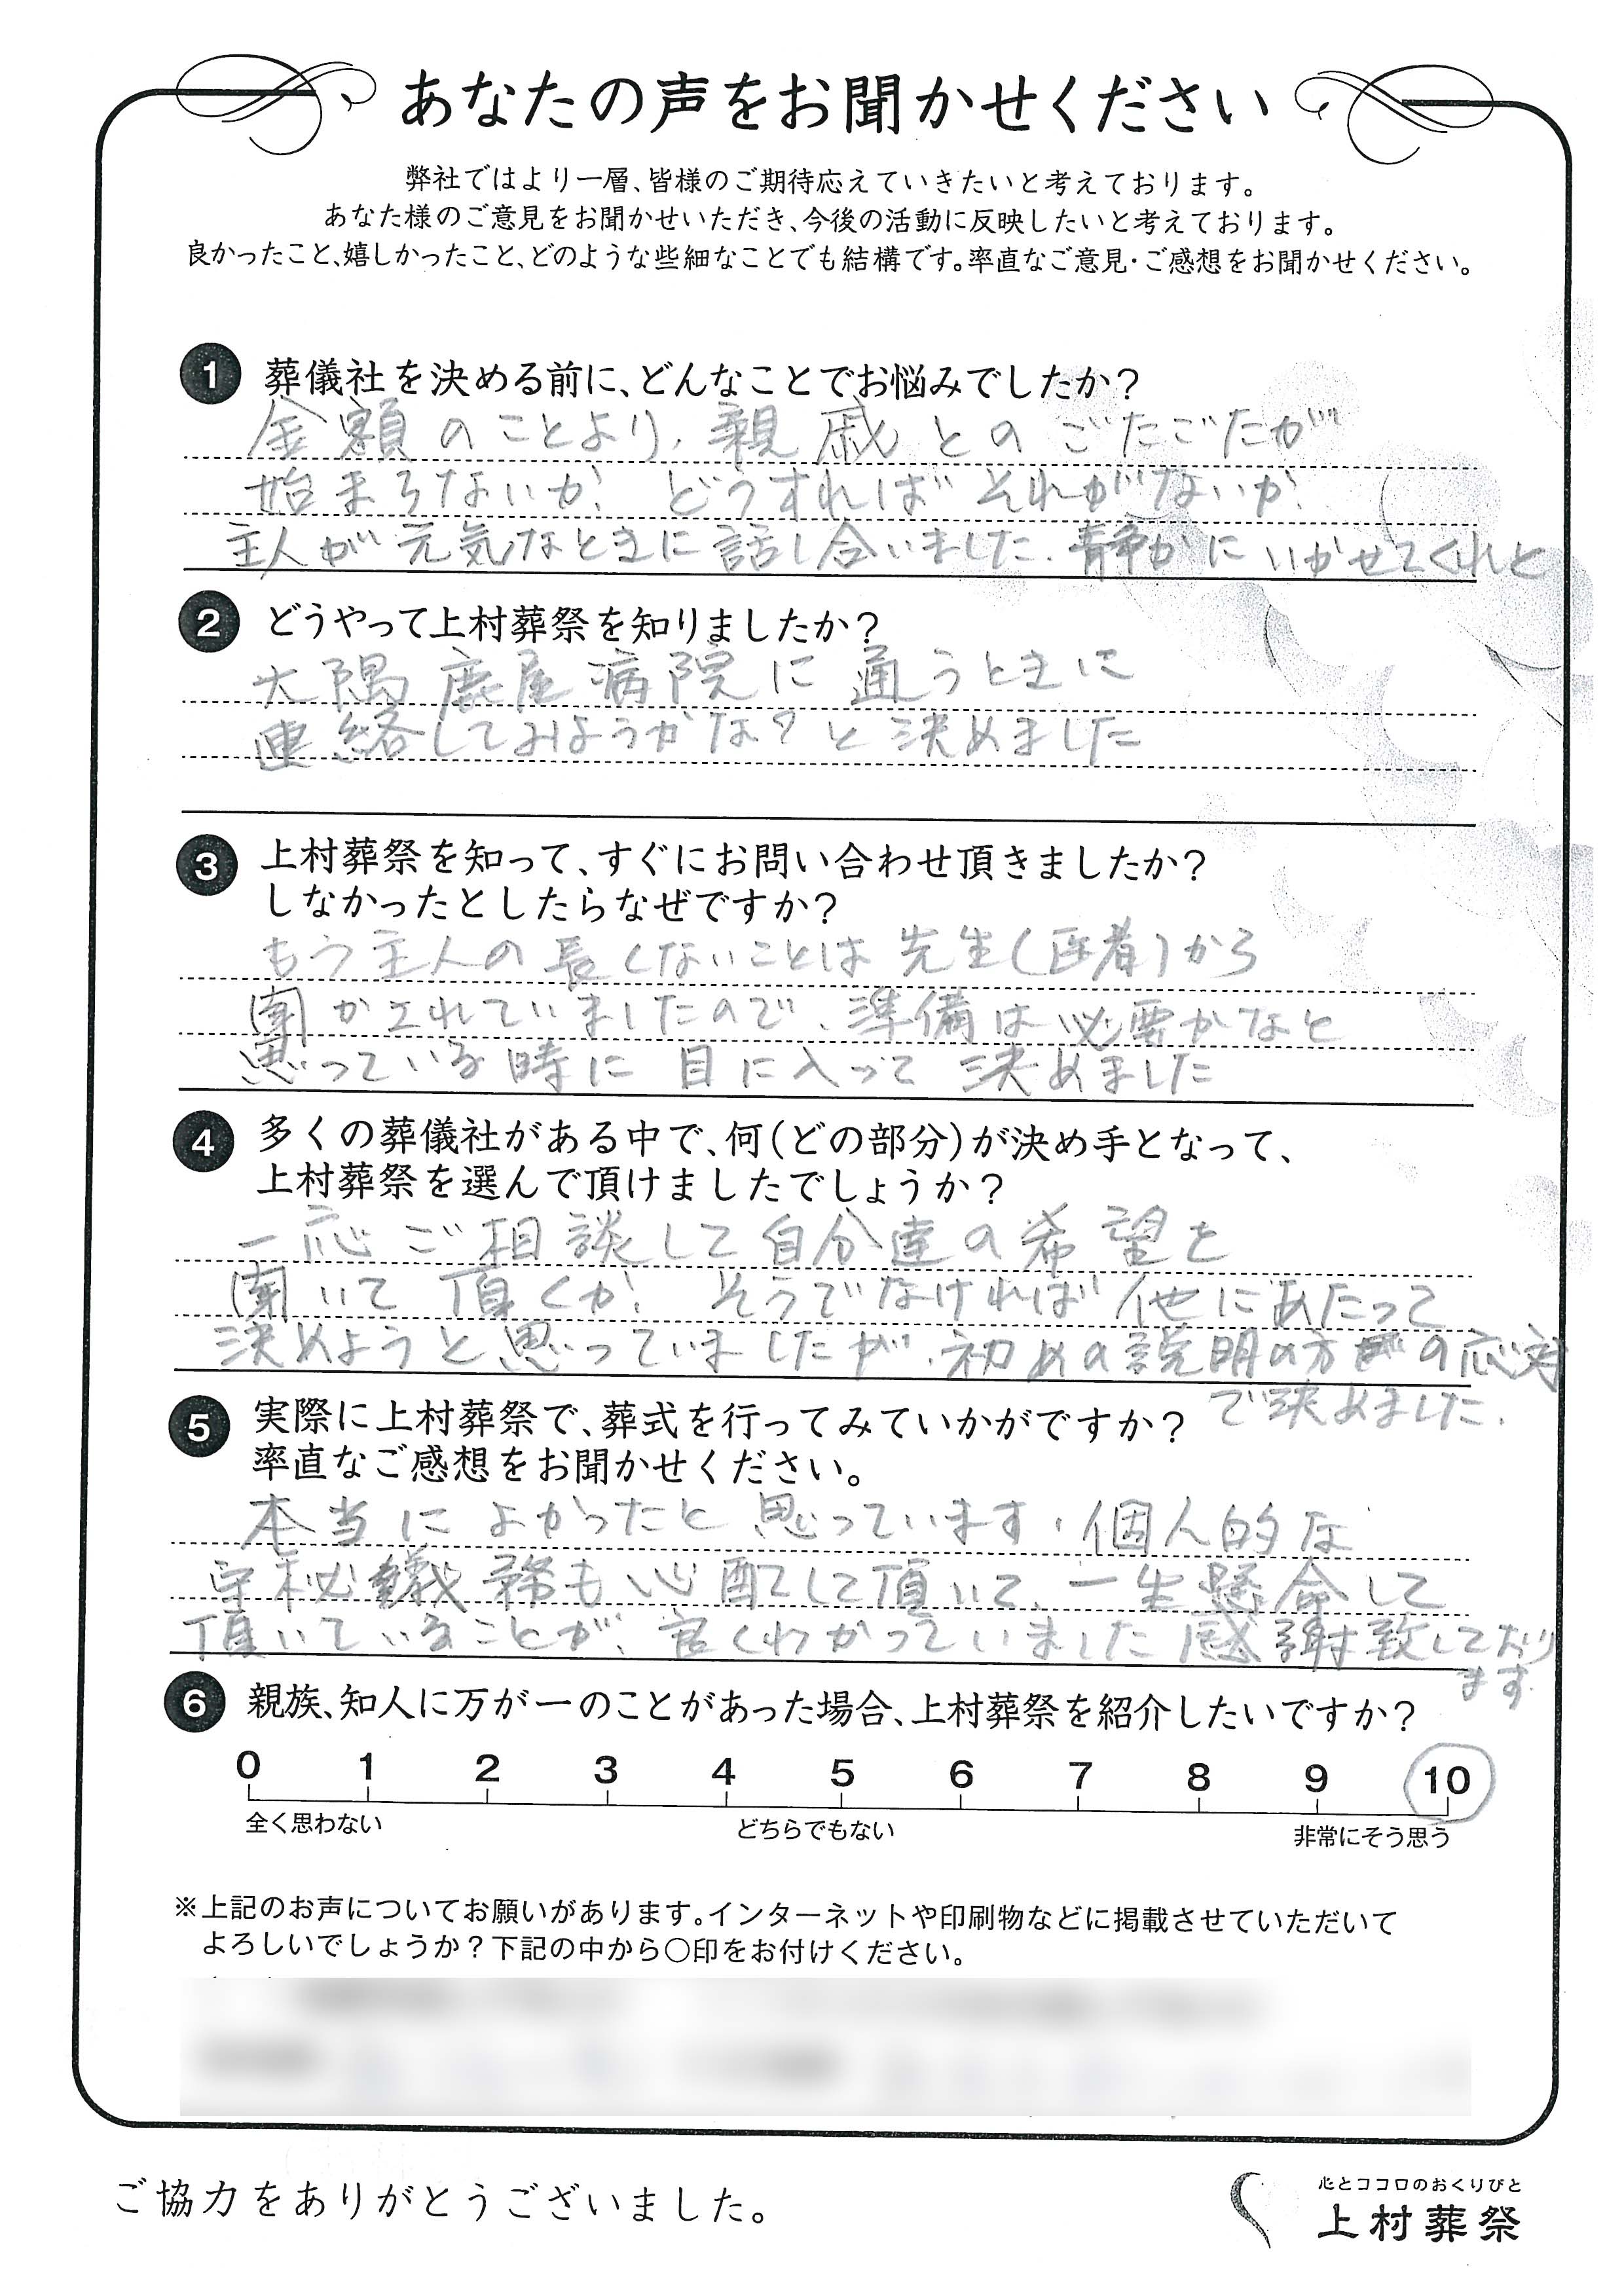 あなたの声をお聞かせください
弊社ではより一層、皆様のご期待応えていきたいと考えております。
あなた様のご意見をお聞かせいただき、今後の活動に反映したいと考えております。
良かったこと、嬉しかったこと、どのような些細なことでも結構です。率直なご意見・ご感想をお聞かせください。
1 葬儀社を決める前に、どんなことでお悩みでしたか?
金額のことより、親戚とのごたごたが
始まらないか、どうすればそれがないか、
主人が元気なときに話し合いました。静かにいかせてくれと
2 どうやって上村葬祭を知りましたか?
大隅鹿屋病院に通うときに
連絡しておようかな?と決めました
3 上村葬祭を知って、すぐにお問い合わせ頂きましたか?
しなかったとしたらなぜですか?
もう主人の長くないことは先生(医者)から
聞かされていましたので、準備は必要かなと
思っている時に目に入って決めました
4 多くの葬儀社がある中で、何(どの部分)が決め手となって、
上村葬祭を選んで頂けましたでしょうか?
一応ご相談して自分達の希望を
聞いて頂くか、そうでなければ他にあたって
決めようと思っていましたが、初めの説明の方の応対
で決めました。
5 実際に上村葬祭で、葬式を行ってみていかがですか?
率直なご感想をお聞かせください。
本当によかったと思っています。個人的な
守秘義務も心配して頂いて、一生懸命して
頂いていることが、良くわかっていました感謝致しており
ます
6 親族、知人に万が一のことがあった場合、上村葬祭を紹介したいですか?
0 1 2 3 4 5 6 7 8 9 10
全く思わない どちらでもない 非常にそう思う
※上記のお声についてお願いがあります。インターネットや印刷物などに掲載させていただいて
よろしいでしょうか?下記の中から○印をお付けください。
ご協力をありがとうございました。
心とココロのおくりびと
上村葬祭